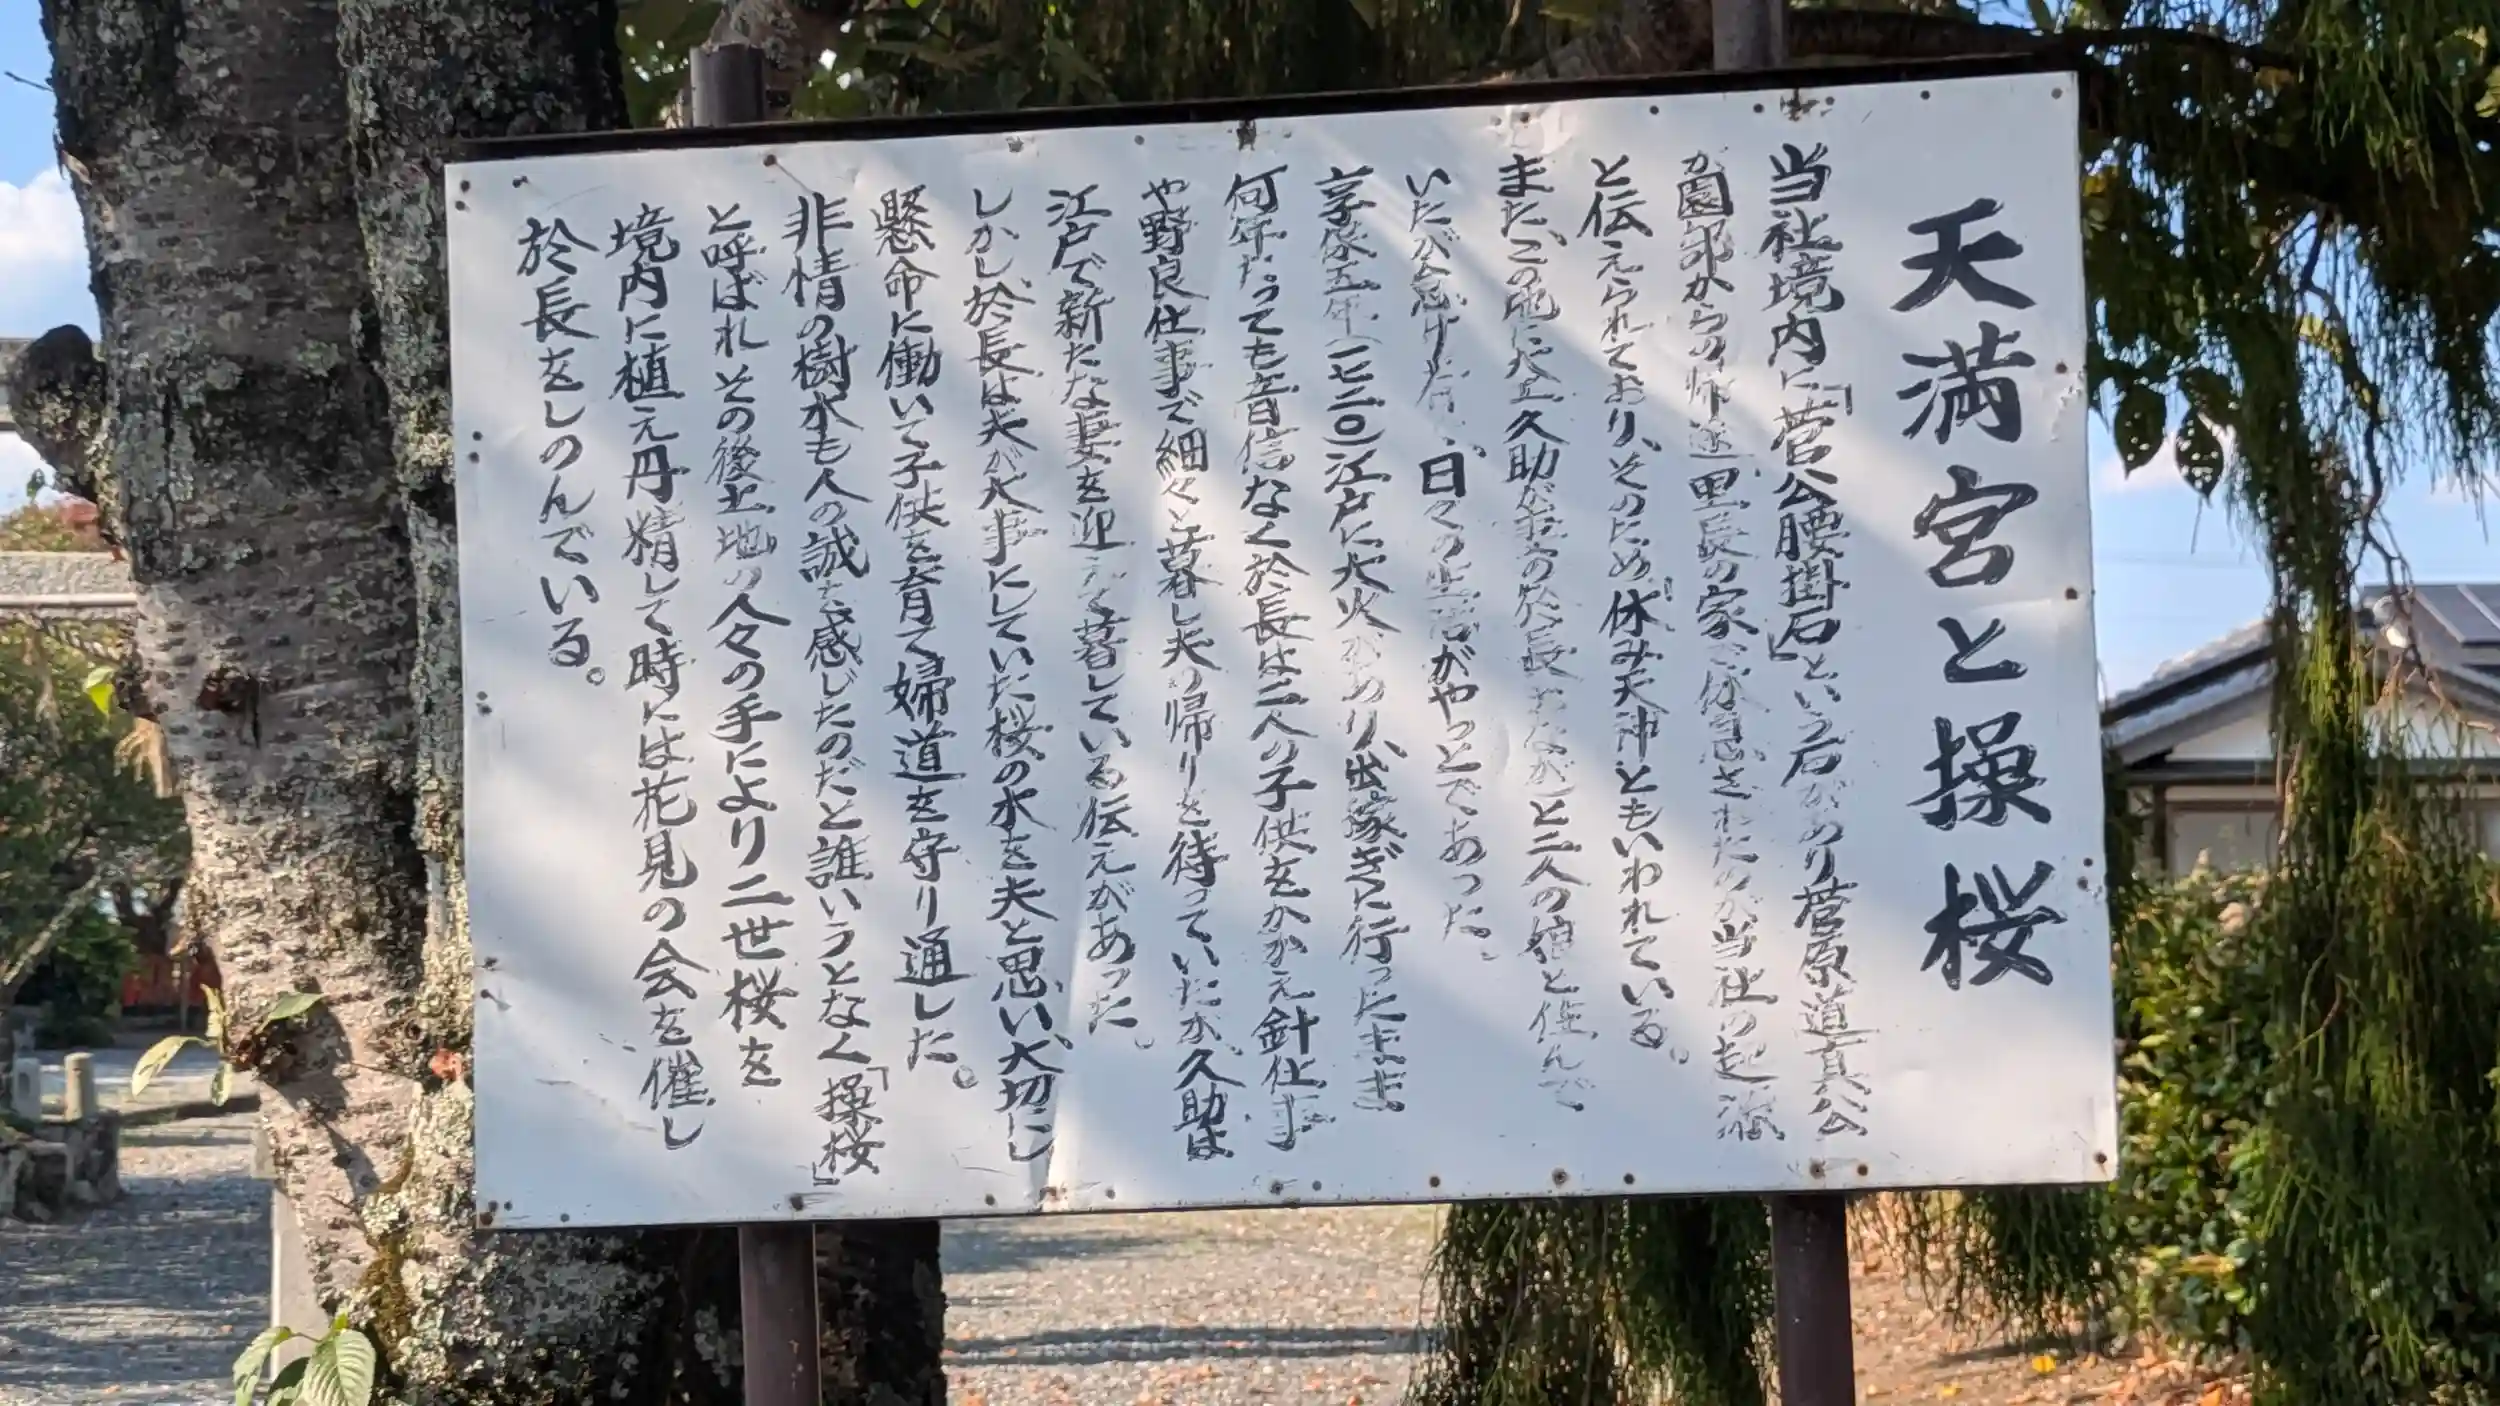 天満宮と操桜
当社境内に「菅公腰掛石」という石があり菅原道真公
が園部からの帰途里長の家で休息されたのが当社の起源
と伝えられており、そのため「休み天神」ともいわれている。
また、この地に大工久助が妻の於長(おなが)と二人の娘と住んで
いたが怠け者で、日々の生活がやっとであった。
享保五年(一七二〇)江戸に大火があり、出稼ぎに行ったまま
何年たっても音信なく於長は二人の子供をかかえ針仕事
や野良仕事で細々と暮し夫の帰りを待っていたが、久助は
江戸で新たな妻を迎えて暮している伝えがあった。
しかし於長は夫が大事にしていた桜の木を夫と思い、大切にし
懸命に働いて子供を育て婦道を守り通した。
非情の樹木も人の誠を感じたのだと誰いうとなく「操桜」
と呼ばれその後土地の人々の手により二世桜を
境内に植え丹精して時には花見の会を催し
於長をしのんでいる。